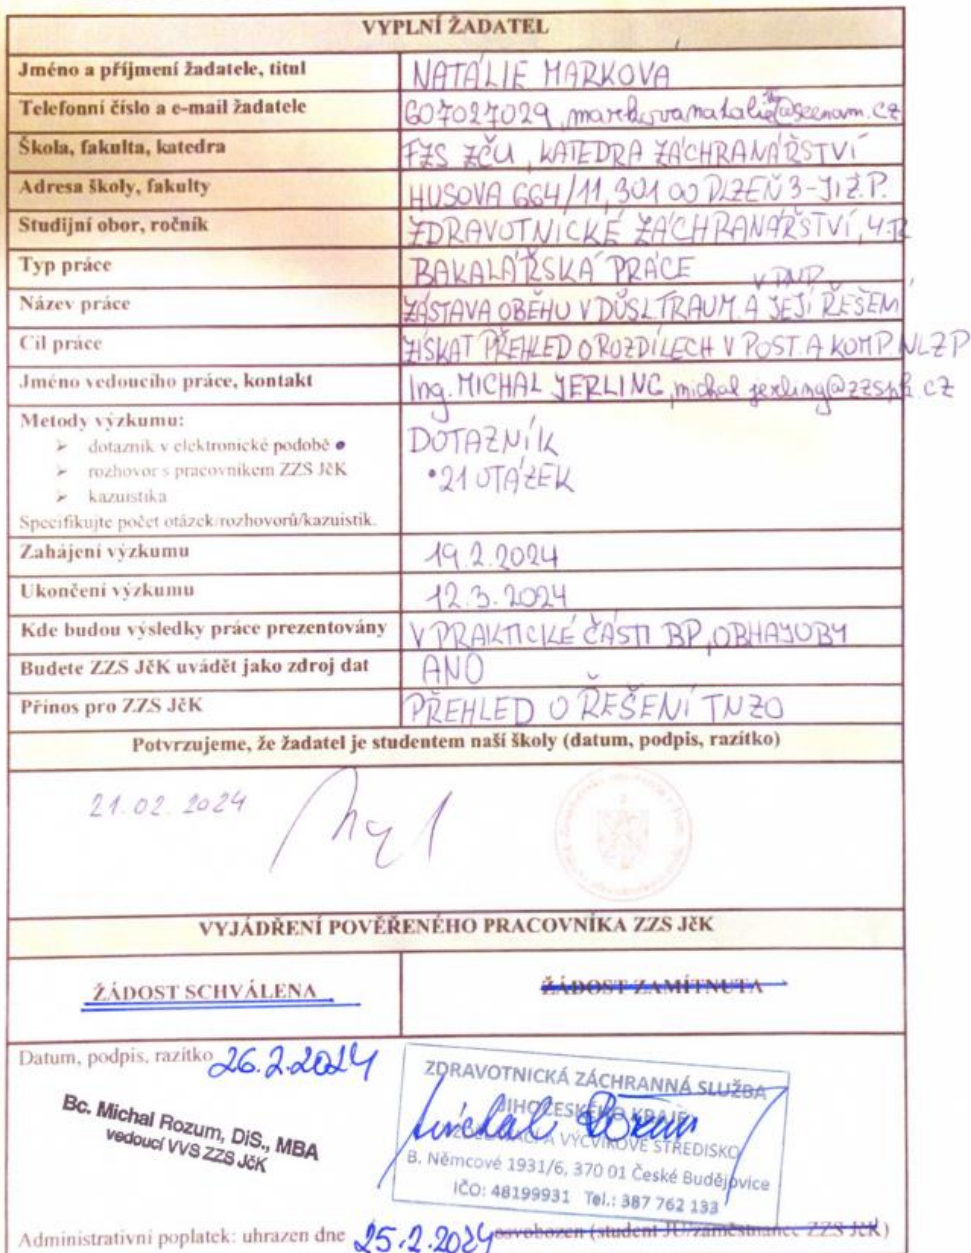 VYPLNÍ ŽADATEL
Jméno a příjmení žadatele, titul NATÁLIE MARKOVA
Telefonní číslo a e-mail žadatele 607027029,
Škola, fakulta, katedra FZS ZČU, KATEDRA ZÁCHRANÁŘSTVÍ
Adresa školy, fakulty HUSOVA 664/11, 301 00 PLZEŇ 3-JIŽ.P.
Studijní obor, ročník ZDRAVOTNICKÉ ZÁCHRANÁŘSTVÍ, 4.R
Typ práce BAKALÁŘSKÁ PRÁCE
Název práce ZÁSTAVA OBĚHU V DŮSL.TRAUM. A JEJÍ ŘEŠENÍ V PNP
Cíl práce ZÍSKAT PŘEHLED O ROZDÍLECH V POST. A KOMP. NLZP
Jméno vedoucího práce, kontakt Ing. MICHAL JERLING, michal.jerling@zzspk.cz
Metody výzkumu: DOTAZNÍK
➢ dotazník v elektronické podobě • •21 OTÁZEK
➢ rozhovor s pracovníkem ZZS JčK
➢ kazuistika
Specifikujte počet otázek/rozhovorů/kazuistik.
Zahájení výzkumu 19.2.2024
Ukončení výzkumu 12.3.2024
Kde budou výsledky práce prezentovány V PRAKTICKÉ ČÁSTI BP, OBHAJOBY
Budete ZZS JčK uvádět jako zdroj dat ANO
Přínos pro ZZS JčK PŘEHLED O ŘEŠENÍ TNZO
Potvrzujeme, že žadatel je studentem naší školy (datum, podpis, razítko)
21.02.2024
VYJÁDŘENÍ POVĚŘENÉHO PRACOVNÍKA ZZS JčK
ŽÁDOST SCHVÁLENA ŽÁDOST ZAMÍTNUTA
Datum, podpis, razítko 26.2.2024
Bc. Michal Rozum, DiS., MBA
vedoucí VVS ZZS JčK
ZDRAVOTNICKÁ ZÁCHRANNÁ SLUŽBA
JIHOČESKÉHO KRAJE
Michal Rozum
VZDĚLÁVACÍ A VÝCVIKOVÉ STŘEDISKO
B. Němcové 1931/6, 370 01 České Budějovice
IČO: 48199931 Tel.: 387 762 133
Administrativní poplatek: uhrazen dne 25.2.2024 osvobozen (student JU/zaměstnanec ZZS JčK)